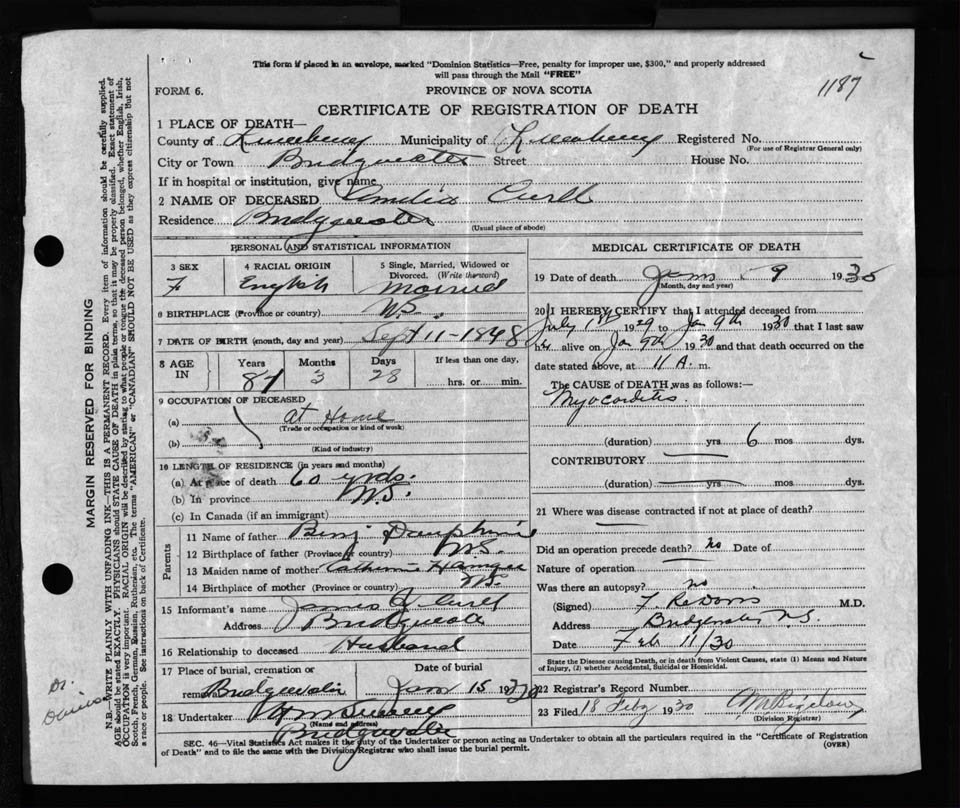 This form if placed in an envelope, marked "Dominion Statistics—Free, penalty for improper use, $300," and properly addressed
will pass through the Mail "FREE"
1187
FORM 6.
PROVINCE OF NOVA SCOTIA
CERTIFICATE OF REGISTRATION OF DEATH
1 PLACE OF DEATH—
County of Lunenburg Municipality of Lunenburg Registered No.
(For use of Registrar General only)
City or Town Bridgewater Street House No.
If in hospital or institution, give name
2 NAME OF DECEASED Curll
Residence Bridgewater
(Usual place of abode)
PERSONAL AND STATISTICAL INFORMATION
3 SEX
F
4 RACIAL ORIGIN
English
5 Single, Married, Widowed or
Divorced. (Write the word)
Married
6 BIRTHPLACE (Province or country) N.S.
7 DATE OF BIRTH (month, day and year) Sept 11-1848
8 AGE IN
Years Months Days If less than one day,
81 3 28 hrs. or min.
9 OCCUPATION OF DECEASED
(a) at Home
(Trade or occupation or kind of work)
(b)
(Kind of industry)
10 LENGTH OF RESIDENCE (in years and months)
(a) At place of death 60 yrds.
(b) In province N.S.
(c) In Canada (if an immigrant)
Parents
11 Name of father Benj Dauphinie
12 Birthplace of father (Province or country) N.S.
13 Maiden name of mother
14 Birthplace of mother (Province or country) N.S.
15 Informant's name James Curll
Address Bridgewater
16 Relationship to deceased Husband
17 Place of burial, cremation or Date of burial
removal Bridgewater Jan 15 1930
18 Undertaker
(Name and address)
Bridgewater
MEDICAL CERTIFICATE OF DEATH
19 Date of death Jan 9 1930
(Month, day and year)
20 I HEREBY CERTIFY that I attended deceased from
July 1st 1929 to Jan 9th 1930 that I last saw
her alive on Jan 9th 1930 and that death occurred on the
date stated above, at 11 A. m.
The CAUSE OF DEATH was as follows:—
Myocarditis.
(duration) yrs 6 mos dys.
CONTRIBUTORY
(duration) yrs mos dys.
21 Where was disease contracted if not at place of death?
Did an operation precede death? no Date of
Nature of operation
Was there an autopsy? no
(Signed) M.D.
Address Bridgewater N.S.
Date Feb 11/30
State the Disease causing Death, or in death from Violent Causes, state (1) Means and Nature
of Injury, (2) whether Accidental, Suicidal or Homicidal.
22 Registrar's Record Number
23 Filed 18 Feby 1930
(Division Registrar)
SEC. 46—Vital Statistics Act makes it the duty of the Undertaker or person acting as Undertaker to obtain all the particulars required in the "Certificate of Registration
of Death" and to file the same with the Division Registrar who shall issue the burial permit.
(OVER)
MARGIN RESERVED FOR BINDING
N.B.—WRITE PLAINLY WITH UNFADING INK—THIS IS A PERMANENT RECORD. Every item of information should be carefully supplied.
AGE should be stated EXACTLY. PHYSICIANS should STATE CAUSE OF DEATH in plain terms, so that it may be properly classified. Exact statement of
OCCUPATION is very important. RACIAL ORIGIN will be described by stating to what people or tongue the deceased person belonged, whether English, Irish,
Scotch, French, German, Russian, Ruthenian, etc. The terms "AMERICAN" or "CANADIAN" SHOULD NOT BE USED as they express citizenship but not
a race or people. See instructions on back of Certificate.
Dr.